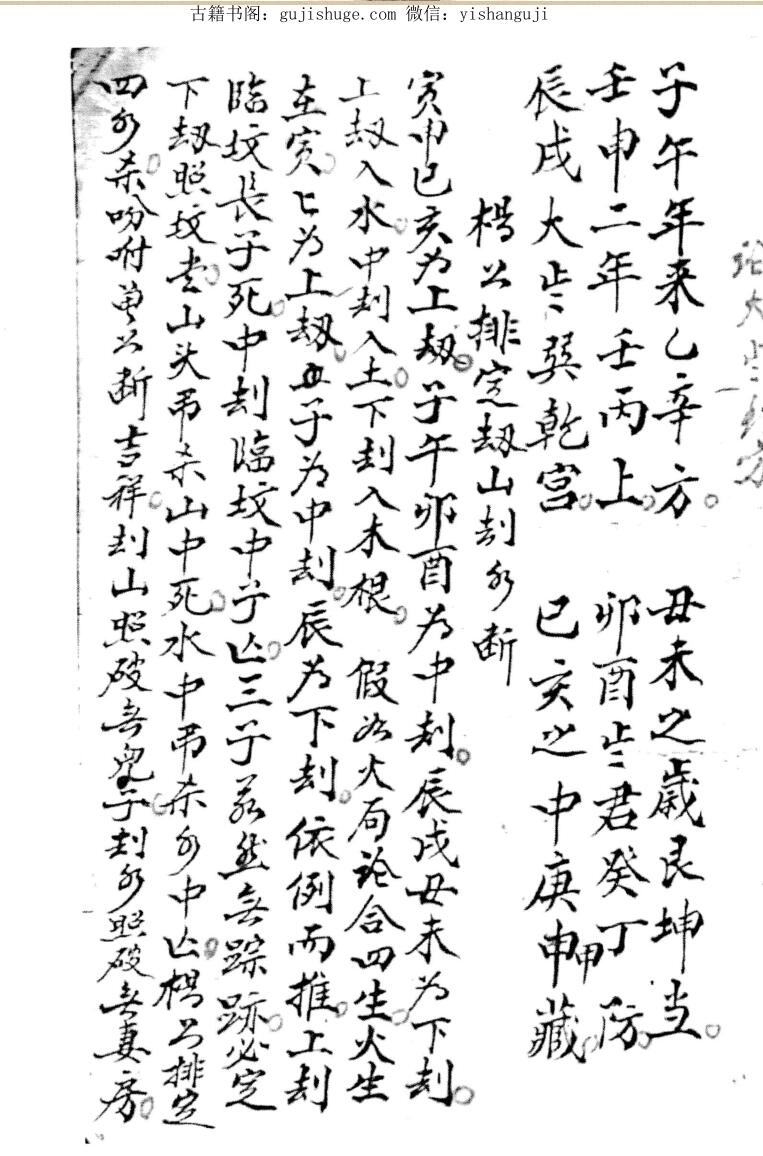 古籍书阁：gujishuge.com 微信：yishanguji
子午年来乙辛方。丑未之歳艮坤当。
壬申二年壬丙上。卯酉歲君癸丁防。
辰戌大歲巽乾宫。巳亥之中庚申甲藏。
楊公排定劫山刦水断
寅申巳亥为上劫。子午卯酉为中刦。辰戌丑未为下刦。
上劫入水。中刦入土。下刦入木根。假如火局论合四生。火生
在寅。亡为上劫。子为中刦。辰为下刦。依例而推。上刦
临坟長子死。中刦临坟中子亡。三子若然無踪跡。必定
下劫照坟堂。山头吊杀山中死。水中吊杀水中亡。楊公排定
四水杀。吩咐曽公断吉祥。刦山照破無児子。刦水照破無妻房。